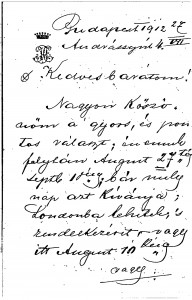 Budapest 1912 27/VII
Andrássy út 4.
Kedves barátom!
Nagyon köszö-
nöm a gyors, és pon-
tos választ, én ennek
folytán August 27től
septb 10ig, bár mely
nap azt kívánja,
Londonba lehetek,
rendelkezésére vagy
itt August 10kéig
vagy